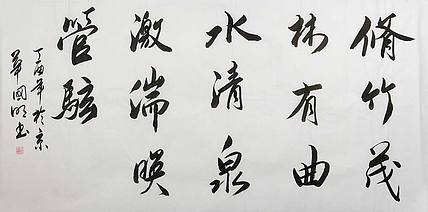 脩竹茂
林有曲
水清泉
激湍暎
管
丁酉年於京
華國明書